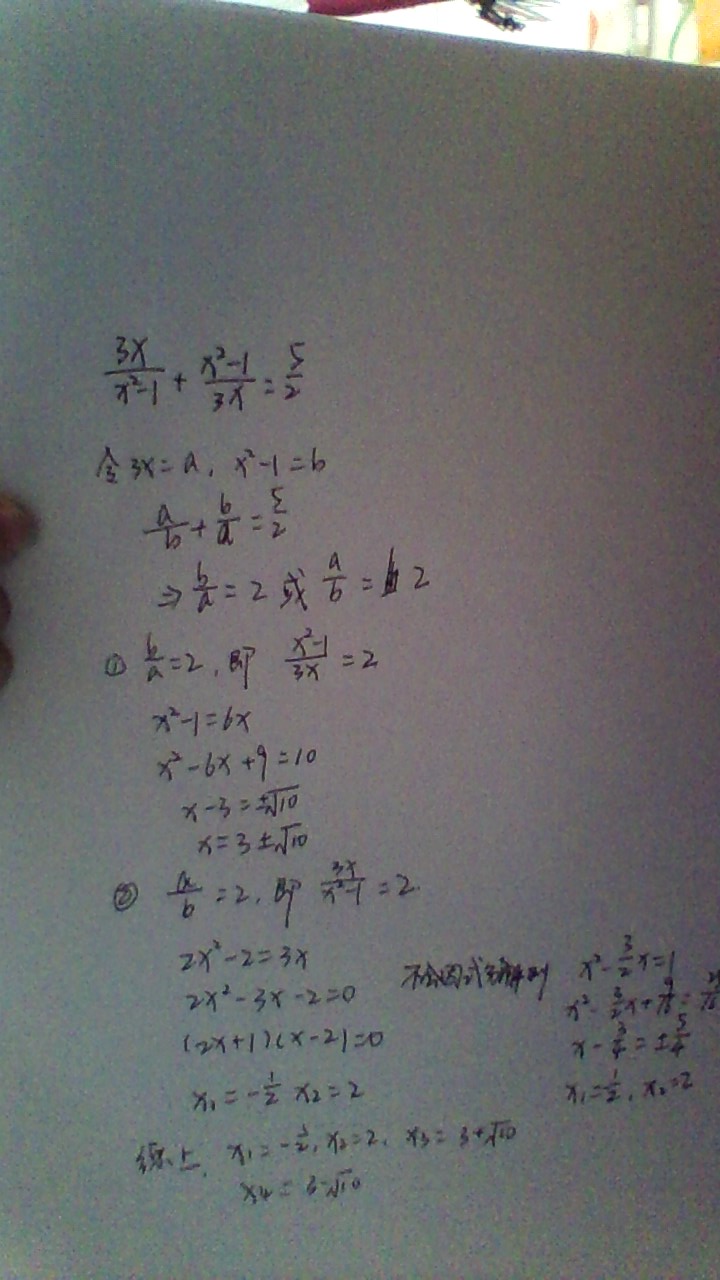 3x/(x²-1) + (x²-1)/3x = 5/2
令3x=a, x²-1=b
a/b + b/a = 5/2
⇒ b/a = 2 或 a/b = 2
① b/a=2, 即 (x²-1)/3x = 2
x²-1=6x
x²-6x+9=10
x-3=±√10
x=3±√10
② a/b=2, 即 3x/(x²-1)=2.
2x²-2=3x
2x²-3x-2=0
(2x+1)(x-2)=0
x₁=-1/2 x₂=2
不会因式分解则 x²-3/2x=1
x²-3/2x+9/16=25/16
x-3/4=±5/4
x₁=-1/2, x₂=2
综上, x₁=-1/2, x₂=2, x₃=3+√10
x₄=3-√10